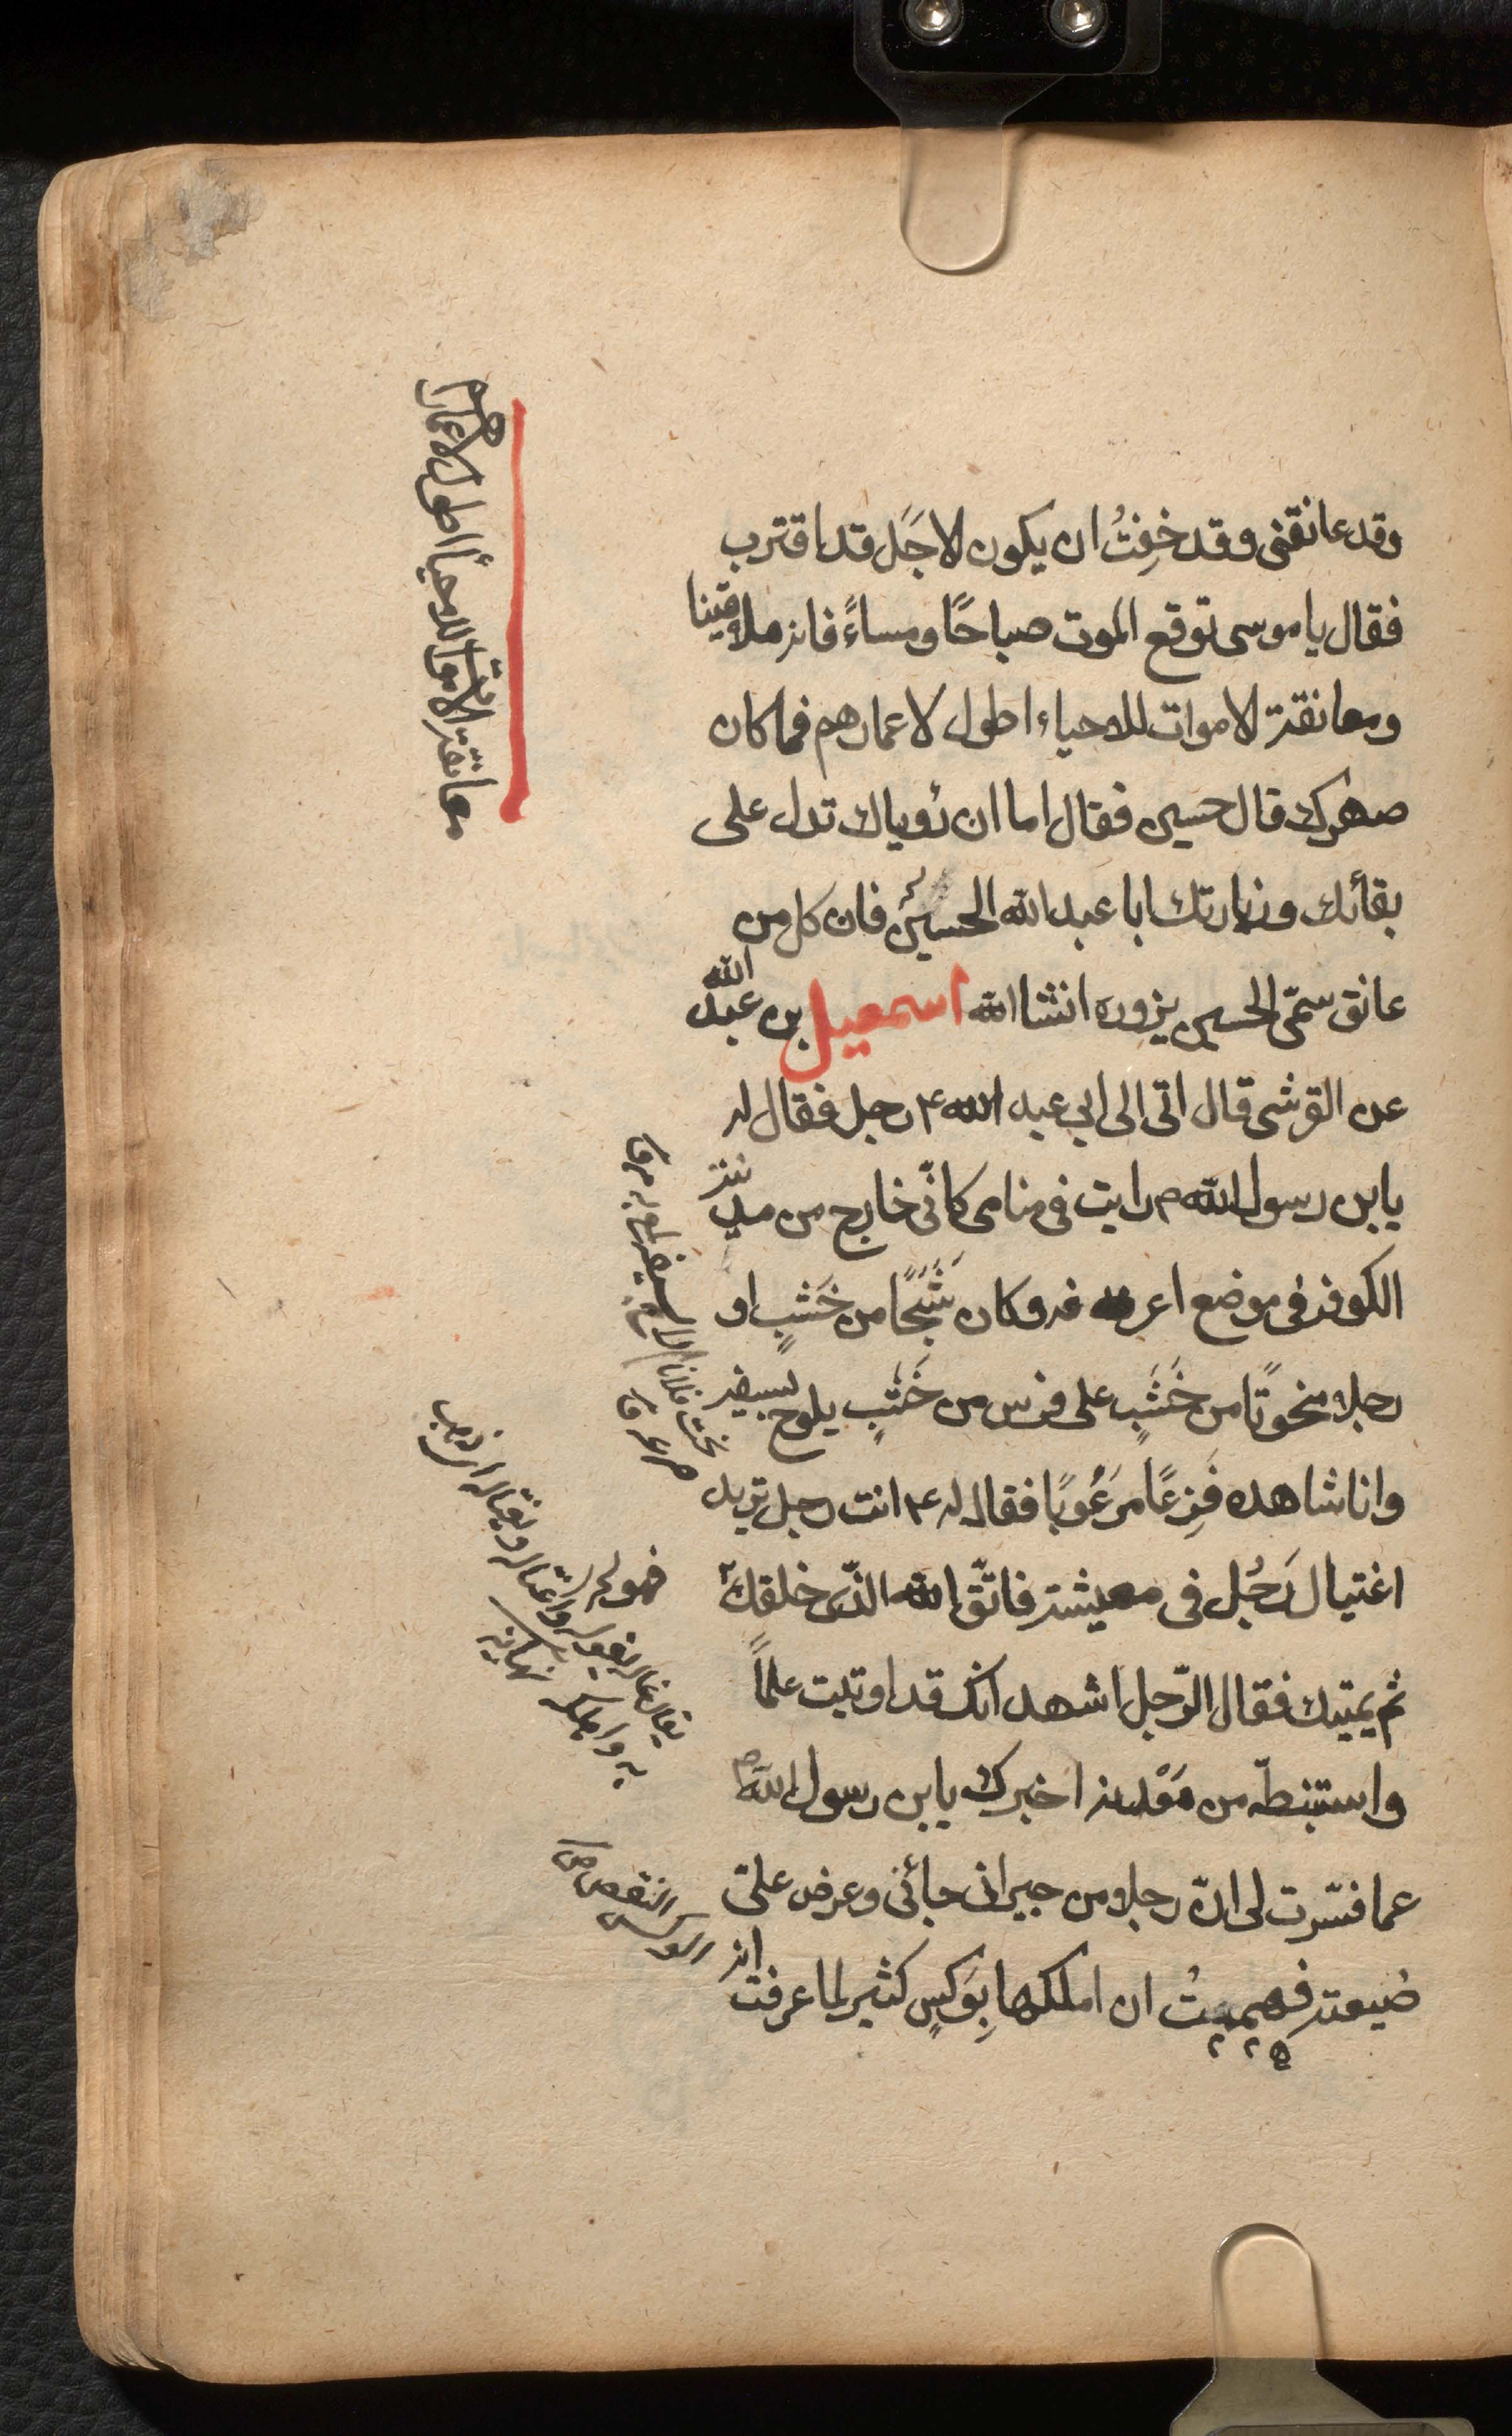 وقد عانقنى وقد خِفتُ ان يكون الاجَل قد اقترب
فقال يا موسى توقع الموت صباحًا ومساءً فانه ملاقينا
ومعانقة الاموات للاحياء اطول لاعمارهم فما كان
صهرك قال حسين فقال اما ان رؤياك تدل على
بقائك وزيارتك ابا عبد الله الحسين فان كل من
عانق سمّى الحسين يزوره انشا الله اسمعيل بن عبد الله
عن القرشى قال اتى الى ابى عبد الله ع رجل فقال له
يابن رسول الله ص رايت فى منامى كانّى خارج من مدينة
الكوفة فى موضع اعرفه فه وكان شَبَحًا من خَشبٍ او
رجلا منحوتًا من خَشَبٍ على فرس من خَشَبٍ يلوح بسيفه
وانا شاهده فَزِعًا مرَعُوبًا فقال له ع انت رجل تريد
اغتيال رَجُل فى معيشته فاتّق الله الذّى خلقك
ثم يميتك فقال الرّجل اشهد انك قد اوتيت علمًا
واستنبطته من مَعْدنه اخبرك يابن رسول الله ص
عما فسّرت لى ان رجلا من جيرانى جائنى وعرض علىّ
ضيعته فهممتُ ان املكها بِوَكسٍ كثير لما عرفت انه
معانقة الاموات للاحياء اطول لاعمارهم
لاح بسيفه لمع به مرقا
نحت فلانا
صرعه ق
قوله
يقال غاله يغوله واغتاله
اى ذهب
به واهلكه نهاية
الوكس النقص ص